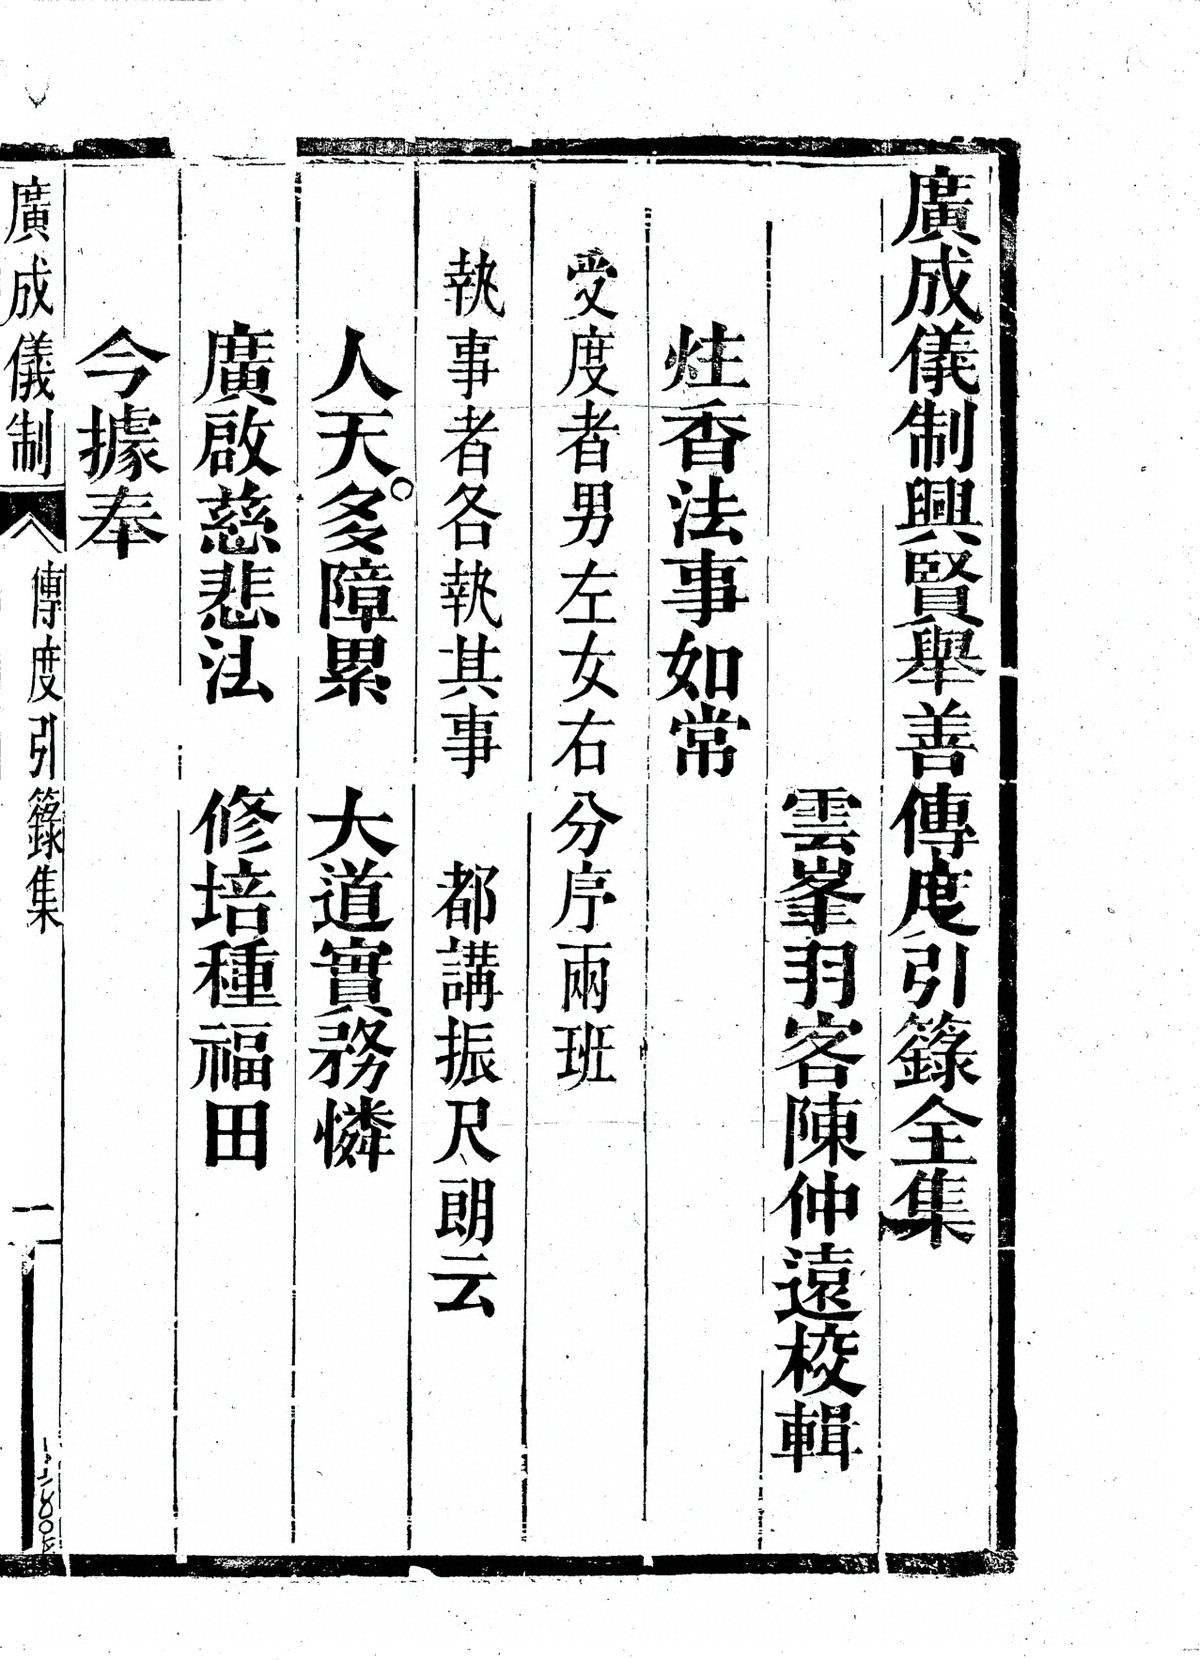 廣成儀制興賢舉善傳度引籙全集
雲峯羽客陳仲遠校輯
炷香法事如常
受度者男左女右分序兩班
執事者各執其事　都講振尺朗云
人天多障累　大道實務憐
廣啟慈悲法　修培種福田
今據奉
廣成儀制　傳度引籙集　一